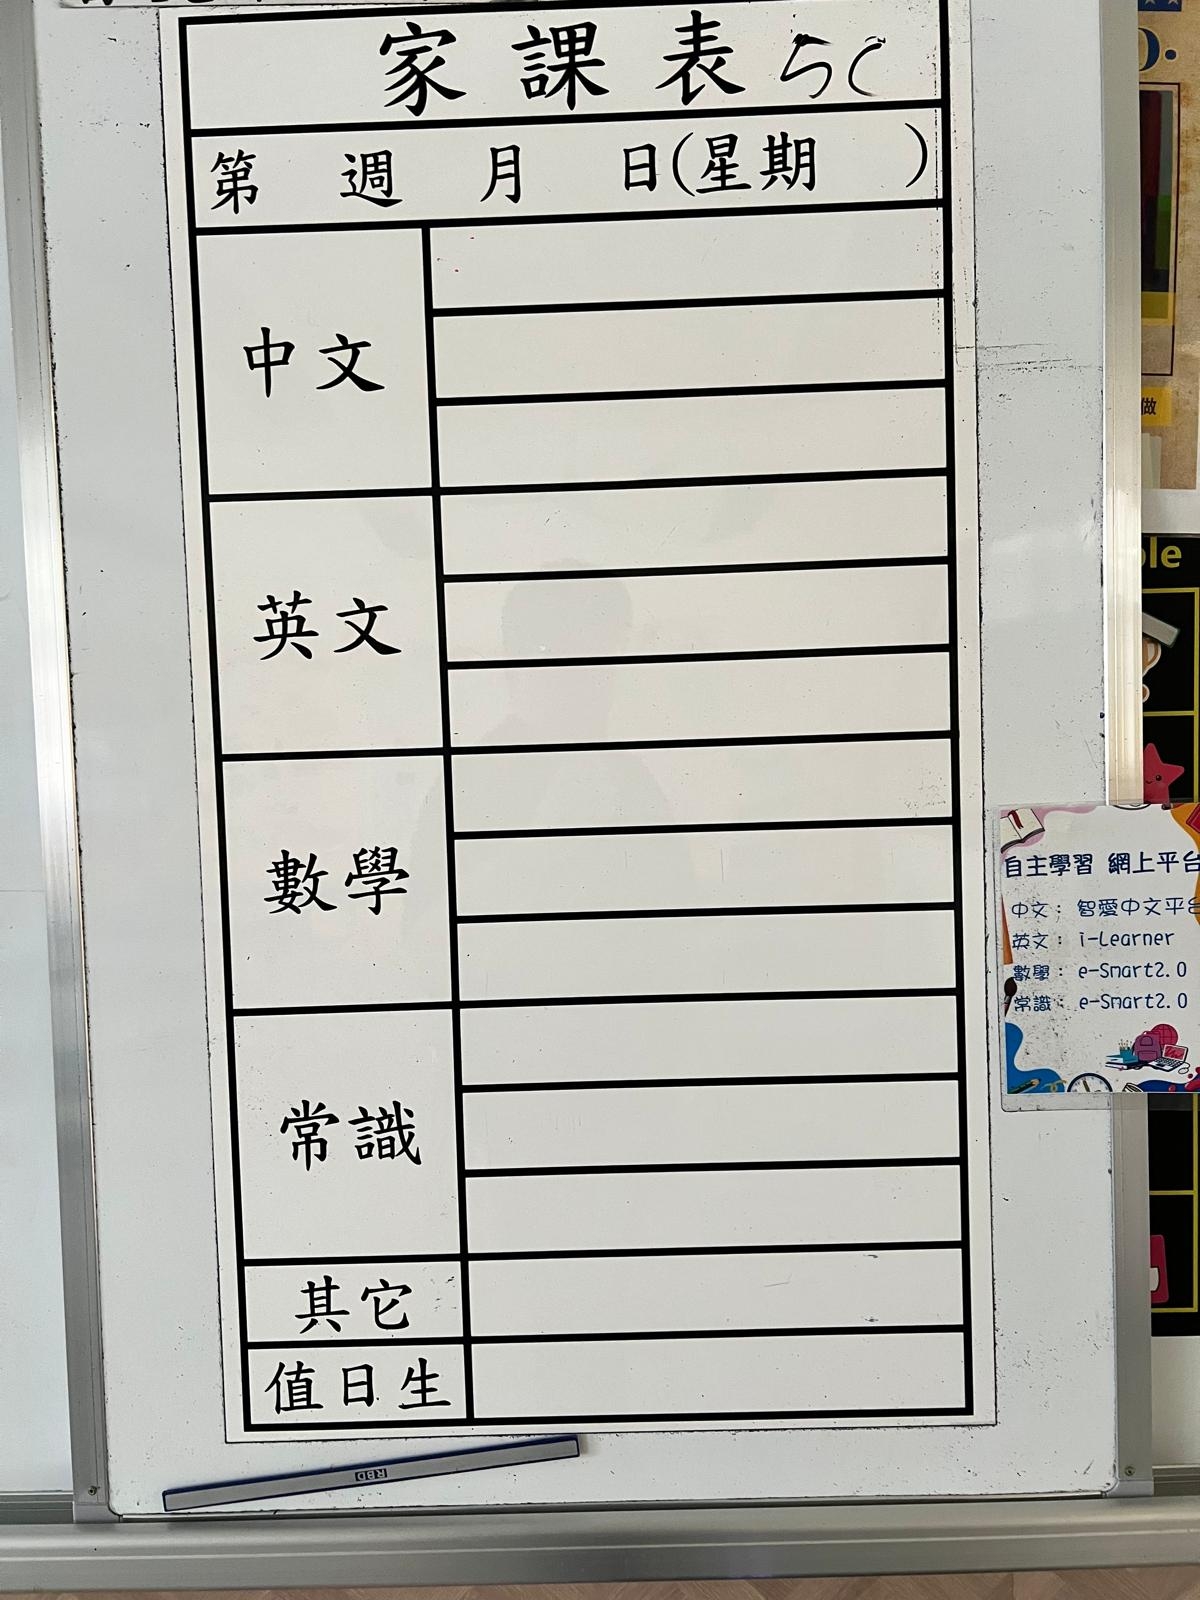 家課表 5C
第 週 月 日(星期 )
中文
英文
數學
常識
其它
值日生
RBD
做
ble
自主學習 網上平台
中文： 智愛中文平台
英文： i-Learner
數學： e-Smart2.0
常識： e-Smart2.0